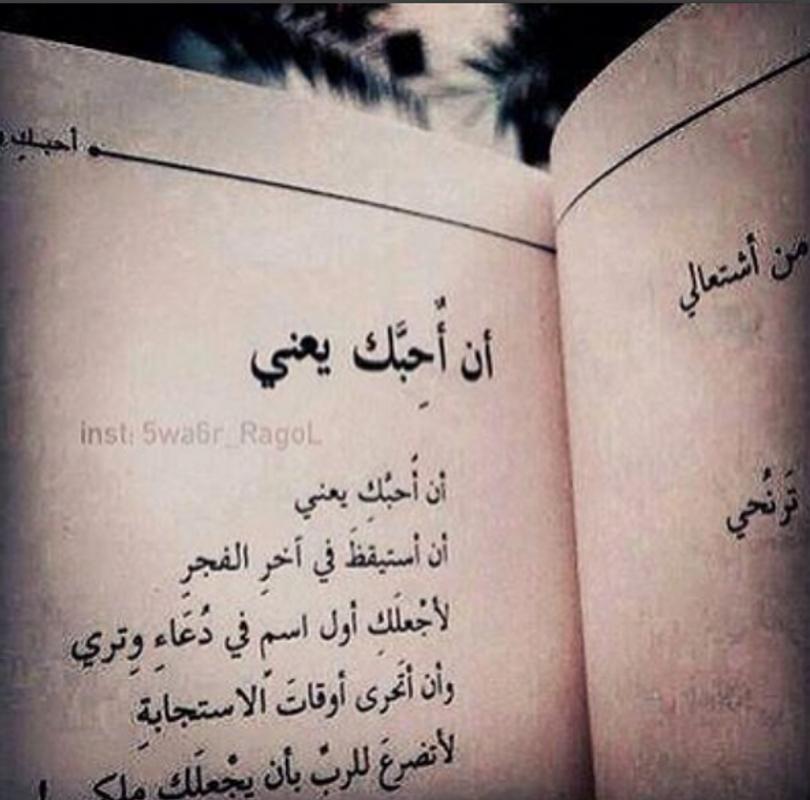 أحبـكِ
من أشتعالي
تَرنُحي
أن أُحِبَّك يعني
inst: 5wa6r_RagoL
أن أُحبُّكِ يعني
أن أستيقظَ في آخرِ الفجرِ
لأجْعلَكِ أول اسمٍ في دُعَاءِ وِتري
وأن أتَحرى أوقاتَ الاستجابةِ
لأتضرعَ للربِّ بأن يجْعلَكِ ملكي !